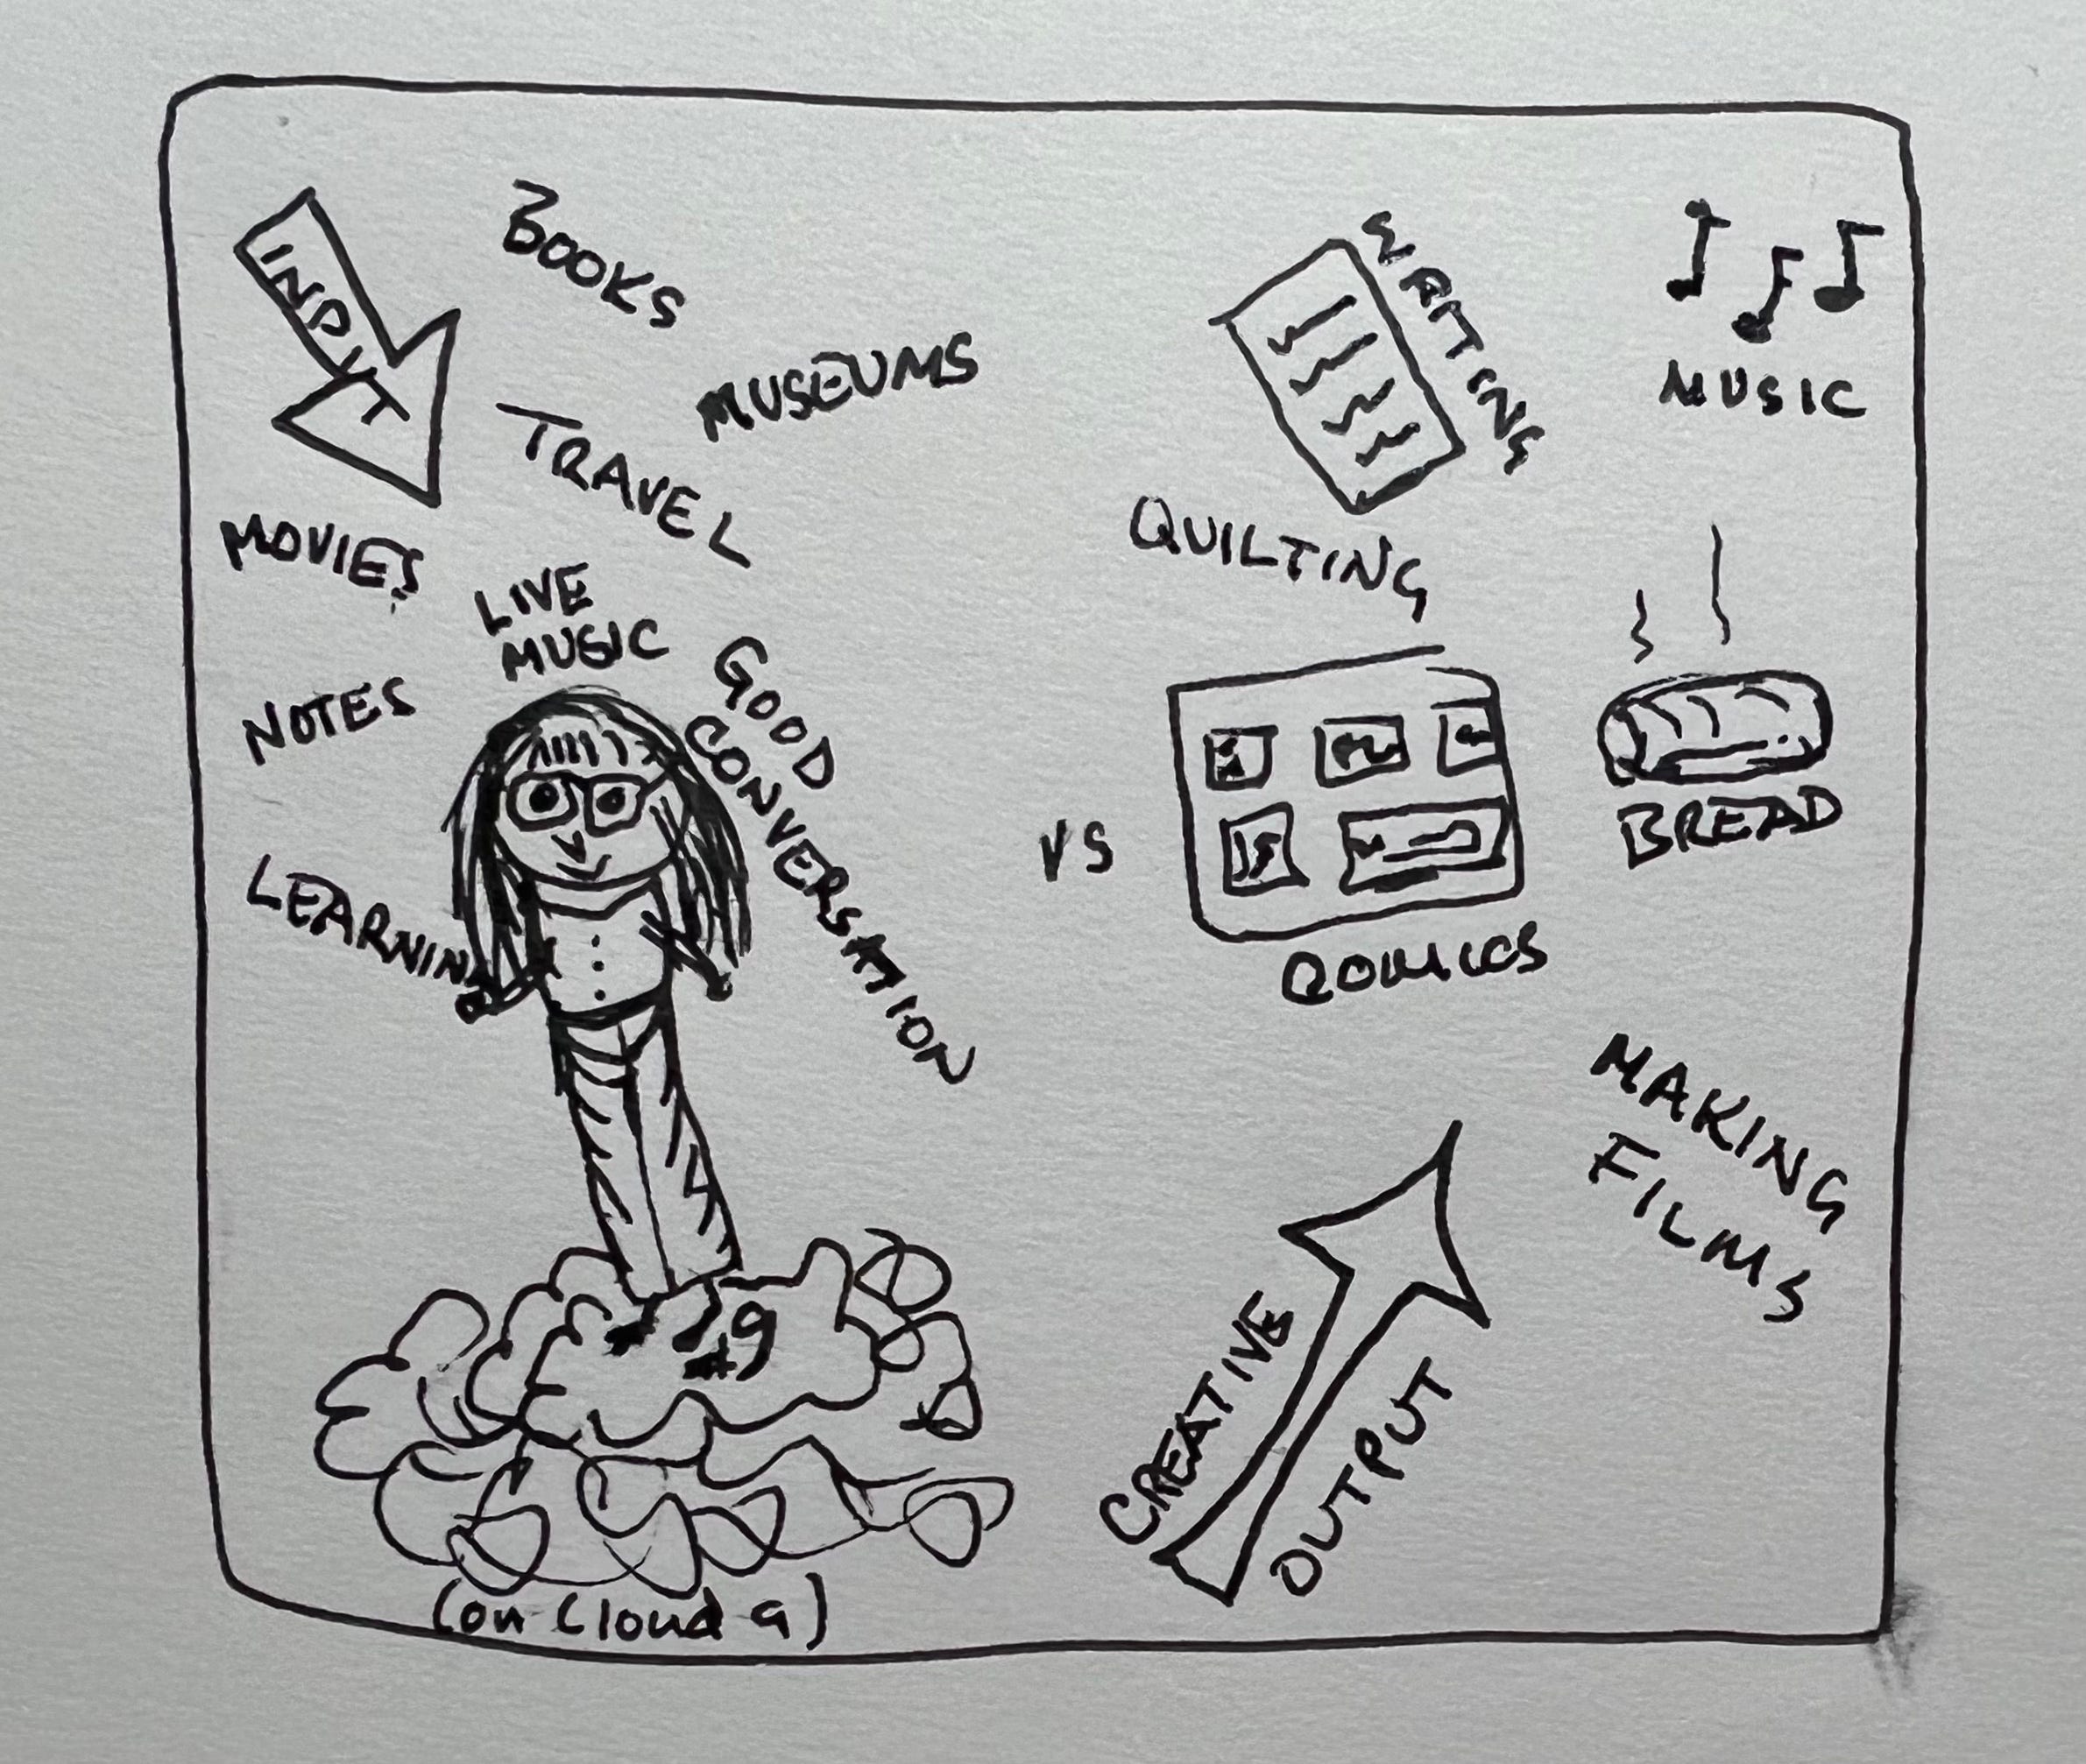 INPUT
BOOKS
MUSEUMS
TRAVEL
MOVIES
LIVE
MUSIC
NOTES
GOOD
CONVERSATION
LEARNING
#9
(on Cloud 9)
VS
WRITING
MUSIC
QUILTING
BREAD
COMICS
MAKING
FILMS
CREATIVE
OUTPUT